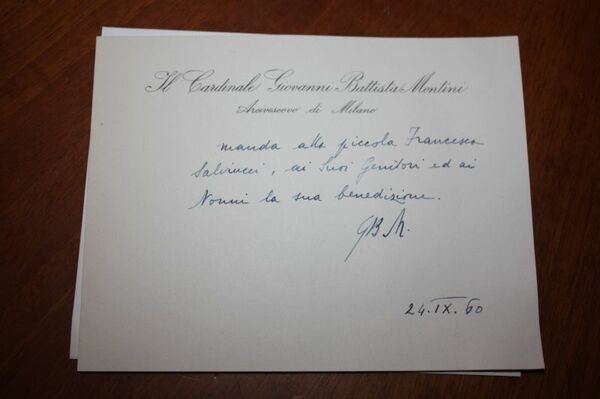 Il Cardinale Giovanni Battista Montini
Arcivescovo di Milano
manda alla piccola Francesca
Salvucci, ai Suoi Genitori ed ai
Nonni la sua benedizione.
GBM.
24.IX.60